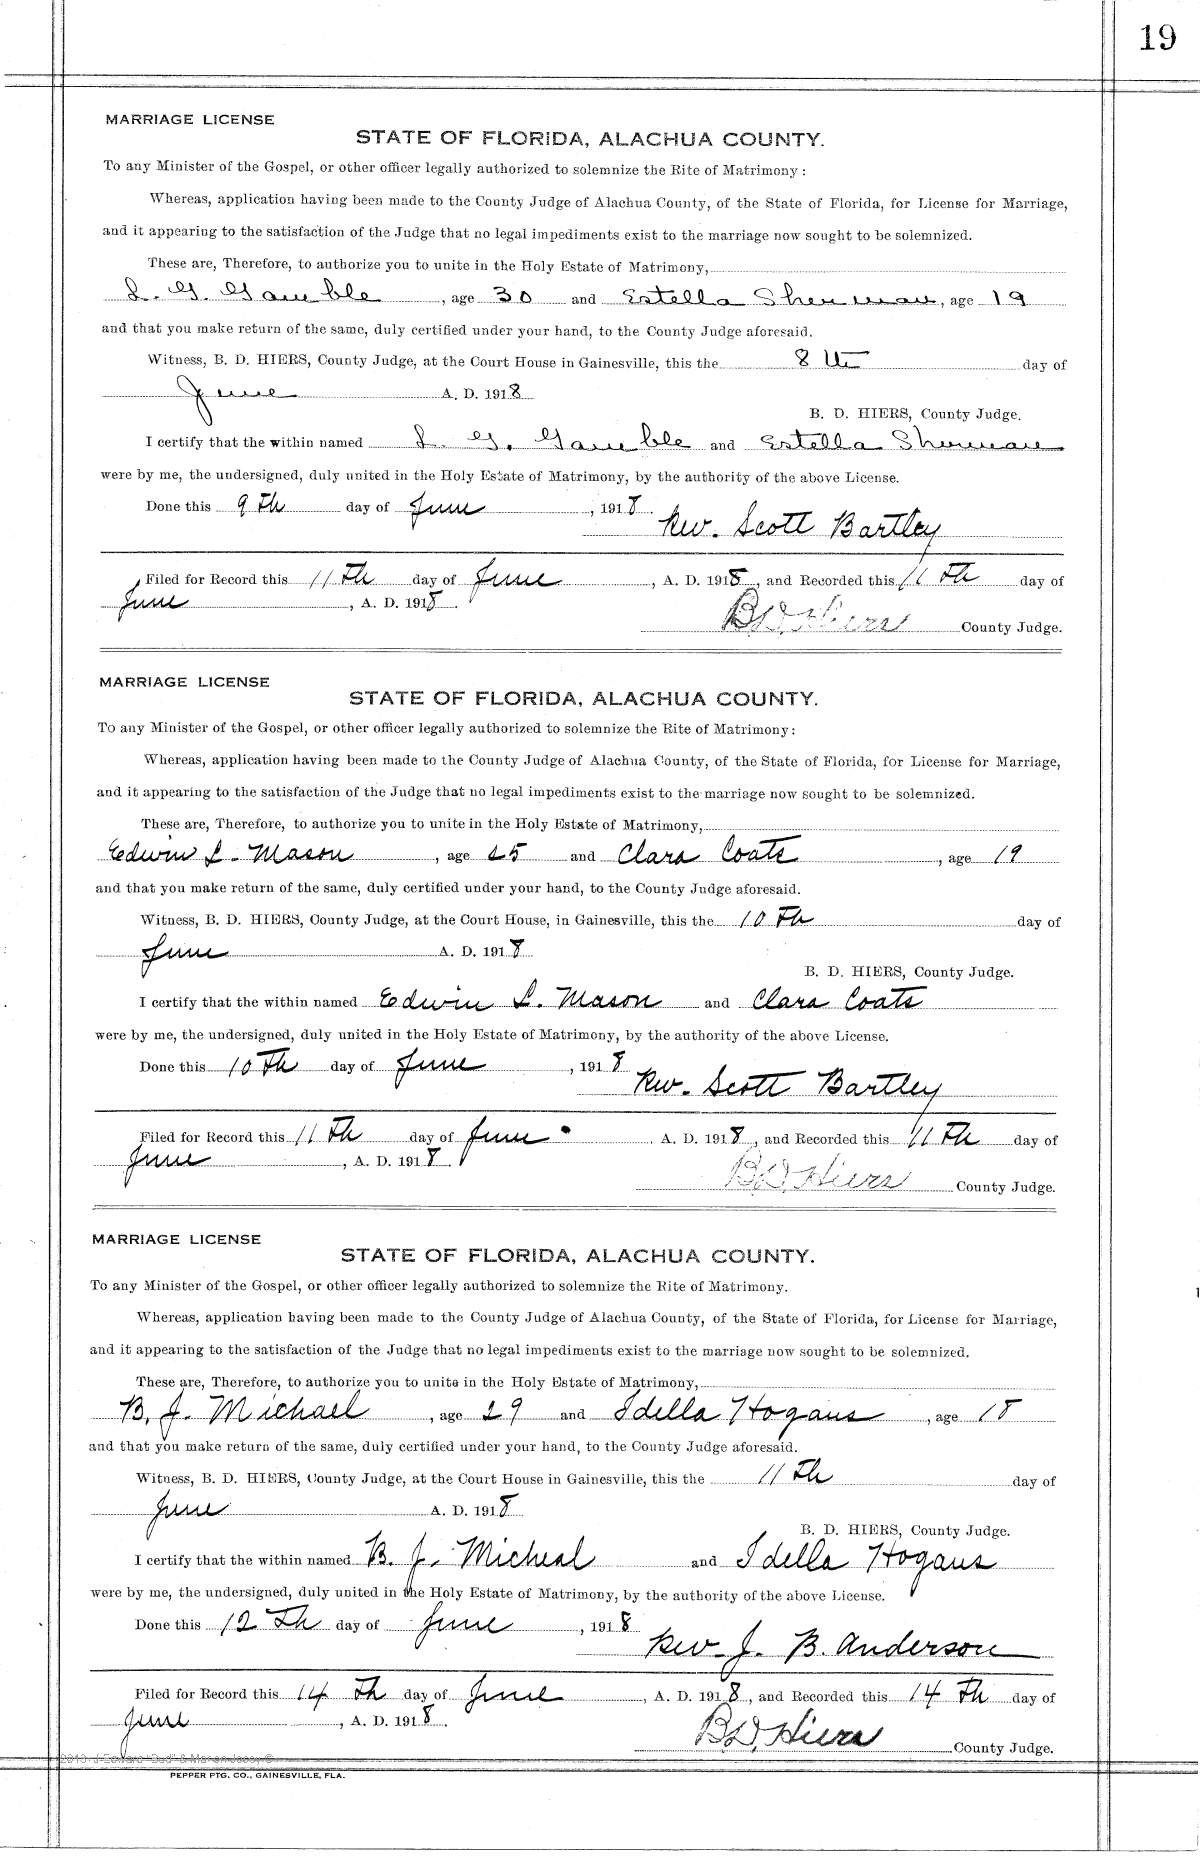 19
MARRIAGE LICENSE
STATE OF FLORIDA, ALACHUA COUNTY.
To any Minister of the Gospel, or other officer legally authorized to solemnize the Rite of Matrimony:
Whereas, application having been made to the County Judge of Alachua County, of the State of Florida, for License for Marriage,
and it appearing to the satisfaction of the Judge that no legal impediments exist to the marriage now sought to be solemnized.
These are, Therefore, to authorize you to unite in the Holy Estate of Matrimony,
G. Gamble, age 30 and Estella Sherman, age 19
and that you make return of the same, duly certified under your hand, to the County Judge aforesaid.
Witness, B. D. HIERS, County Judge, at the Court House in Gainesville, this the 8th day of
June A. D. 1918
B. D. HIERS, County Judge.
I certify that the within named G. Gamble and Estella Sherman
were by me, the undersigned, duly united in the Holy Estate of Matrimony, by the authority of the above License.
Done this 9th day of June, 1918. Rev. Scott Bartley
Filed for Record this 11th day of June, A. D. 1918, and Recorded this 11th day of
June, A. D. 1918.
B D. Hiers County Judge.
MARRIAGE LICENSE
STATE OF FLORIDA, ALACHUA COUNTY.
To any Minister of the Gospel, or other officer legally authorized to solemnize the Rite of Matrimony:
Whereas, application having been made to the County Judge of Alachua County, of the State of Florida, for License for Marriage,
and it appearing to the satisfaction of the Judge that no legal impediments exist to the marriage now sought to be solemnized.
These are, Therefore, to authorize you to unite in the Holy Estate of Matrimony,
Edwin L. Mason, age 25 and Clara Coats, age 19
and that you make return of the same, duly certified under your hand, to the County Judge aforesaid.
Witness, B. D. HIERS, County Judge, at the Court House, in Gainesville, this the 10th day of
June A. D. 1918
B. D. HIERS, County Judge.
I certify that the within named Edwin L. Mason and Clara Coats
were by me, the undersigned, duly united in the Holy Estate of Matrimony, by the authority of the above License.
Done this 10th day of June, 1918 Rev. Scott Bartley
Filed for Record this 11th day of June A. D. 1918, and Recorded this 11th day of
June, A. D. 1918.
B. D. Hiers County Judge.
MARRIAGE LICENSE
STATE OF FLORIDA, ALACHUA COUNTY.
To any Minister of the Gospel, or other officer legally authorized to solemnize the Rite of Matrimony.
Whereas, application having been made to the County Judge of Alachua County, of the State of Florida, for License for Marriage,
and it appearing to the satisfaction of the Judge that no legal impediments exist to the marriage now sought to be solemnized.
These are, Therefore, to authorize you to unite in the Holy Estate of Matrimony,
B. J. Michael, age 29 and Idella Hogans, age 18
and that you make return of the same, duly certified under your hand, to the County Judge aforesaid.
Witness, B. D. HIERS, County Judge, at the Court House in Gainesville, this the 11th day of
June A. D. 1918
B. D. HIERS, County Judge.
I certify that the within named B. J. Micheal and Idella Hogans
were by me, the undersigned, duly united in the Holy Estate of Matrimony, by the authority of the above License.
Done this 12th day of June, 1918 Rev. J. B. Anderson
Filed for Record this 14th day of June, A. D. 1918, and Recorded this 14th day of
June, A. D. 1918.
B. D. Hiers County Judge.
PEPPER PTG. CO., GAINESVILLE, FLA.